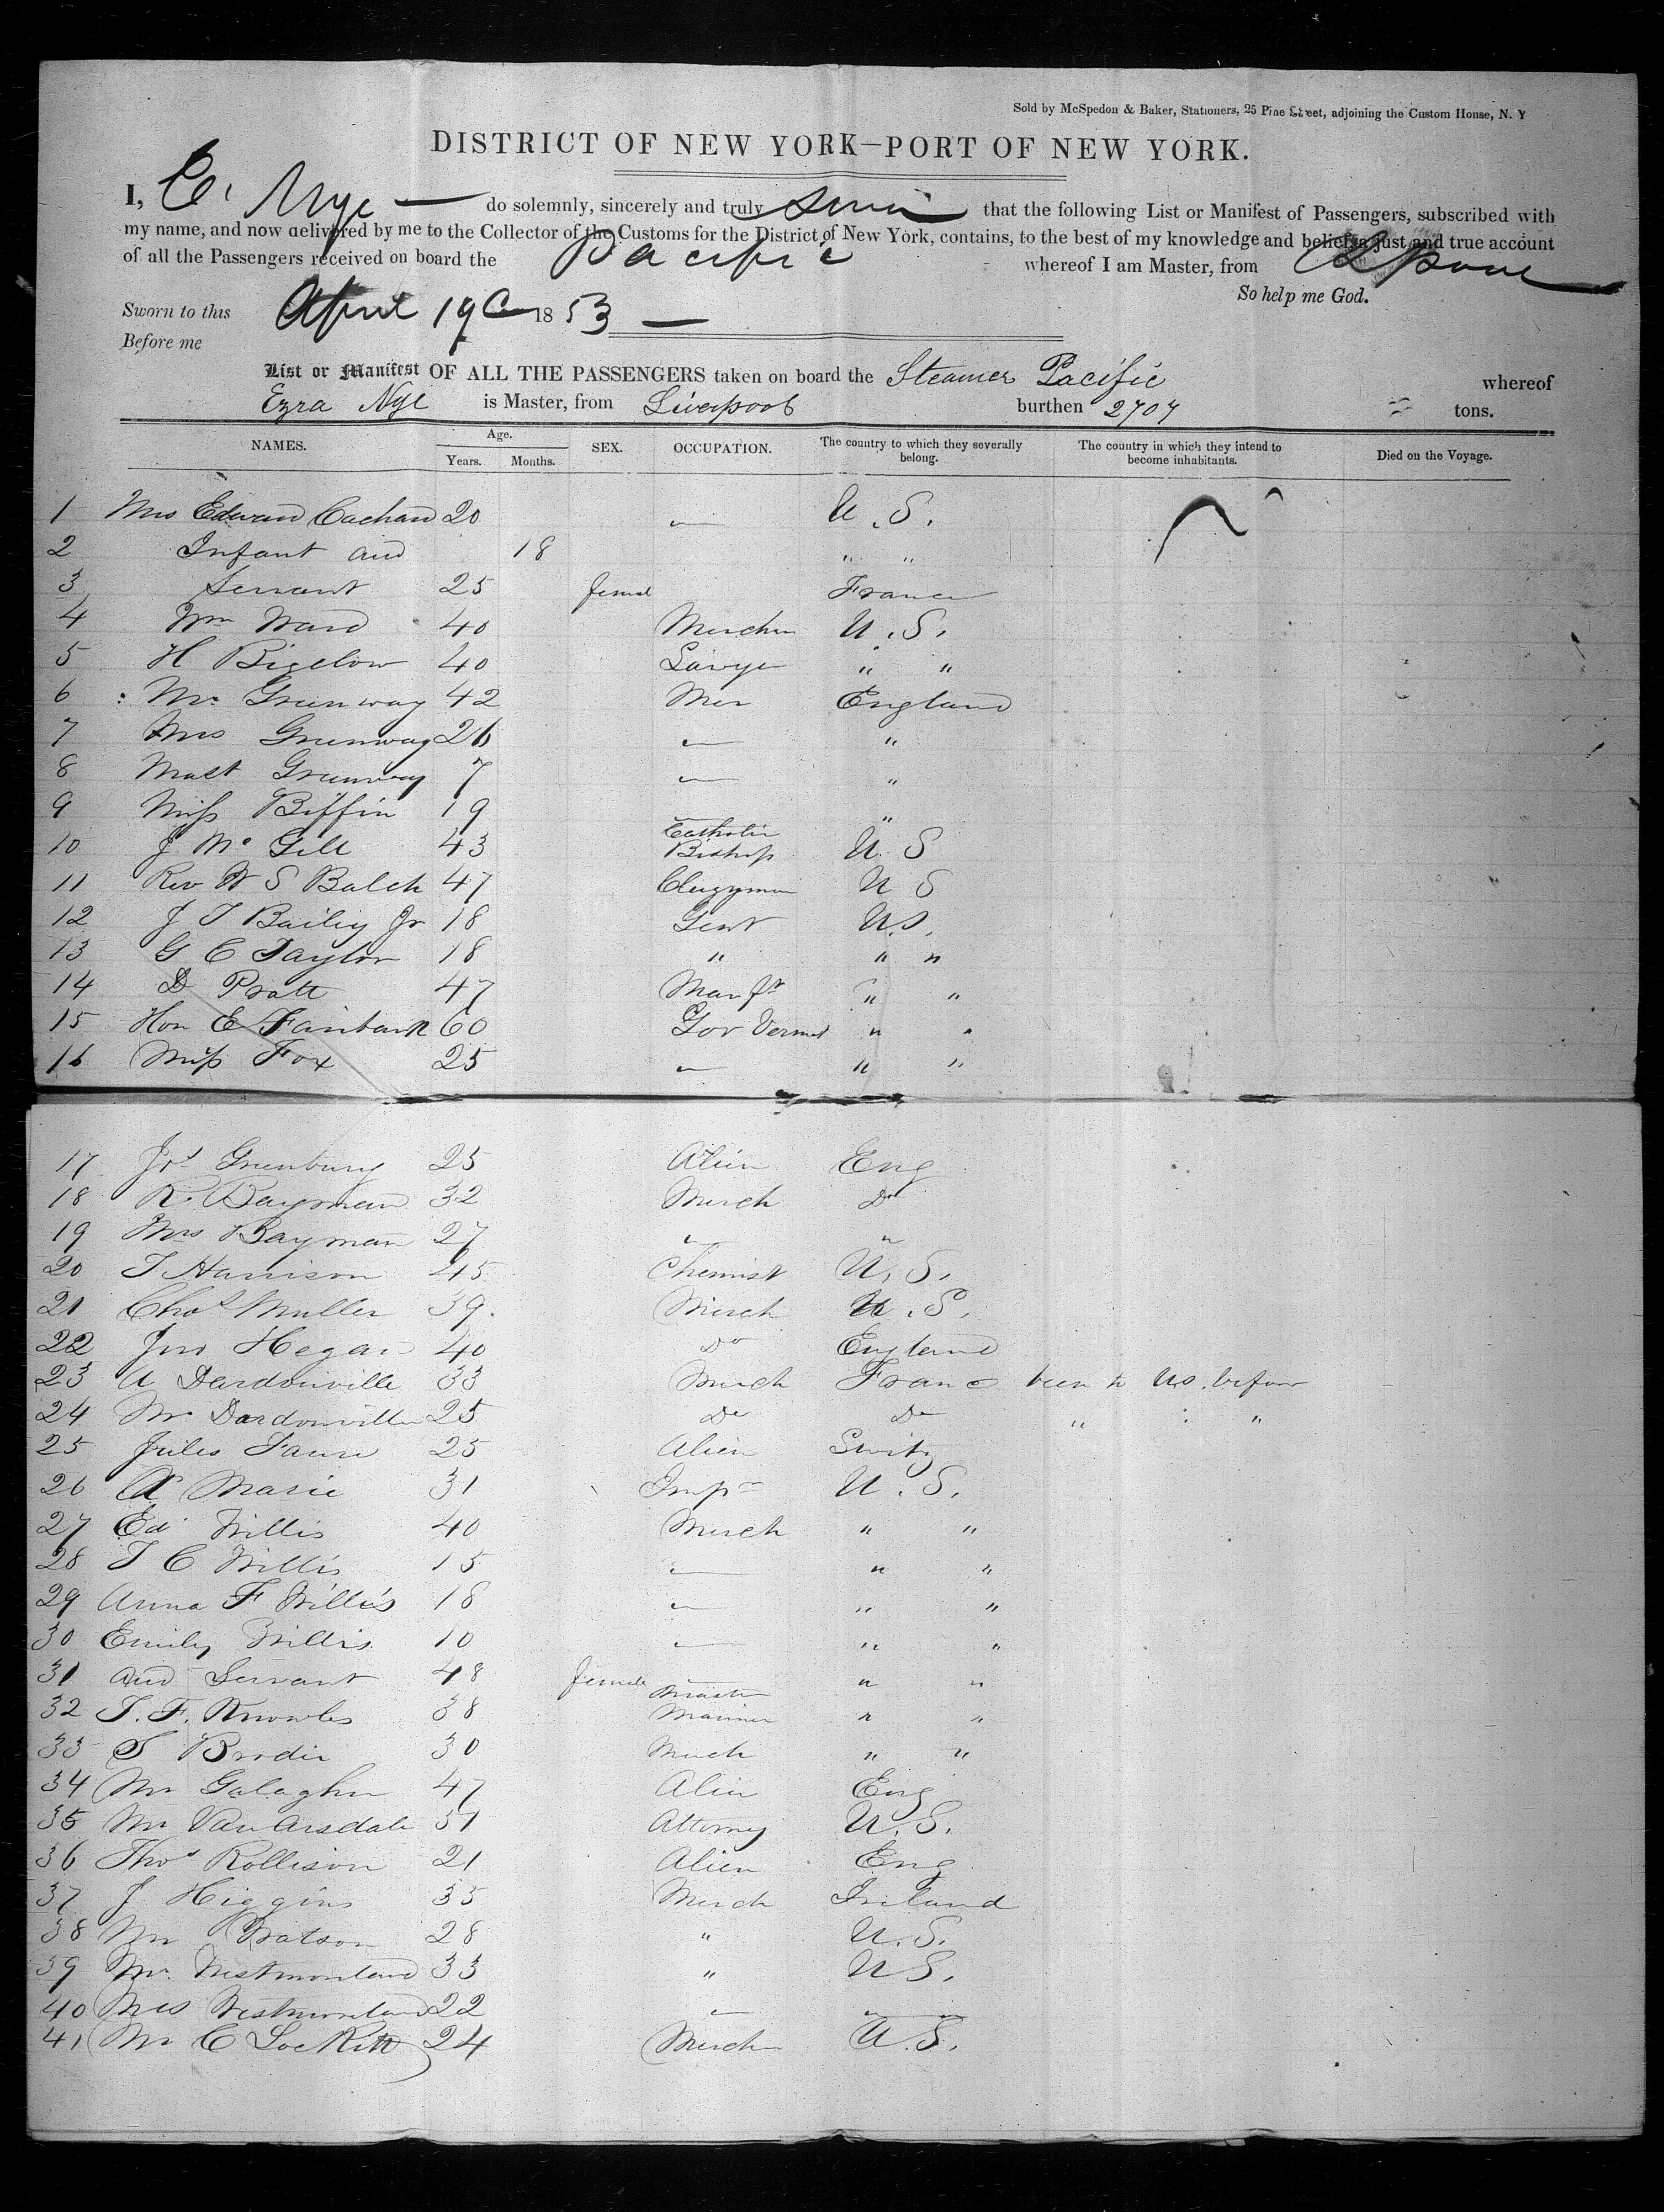 Sold by McSpedon & Baker, Stationers, 25 Pine Street, adjoining the Custom House, N. Y
DISTRICT OF NEW YORK—PORT OF NEW YORK.
I, E. Nye — do solemnly, sincerely and truly that the following List or Manifest of Passengers, subscribed with
my name, and now delivered by me to the Collector of the Customs for the District of New York, contains, to the best of my knowledge and belief a just and true account
of all the Passengers received on board the Pacific whereof I am Master, from
So help me God.
Sworn to this April 19 1853 —
Before me
List or Manifest OF ALL THE PASSENGERS taken on board the Steamer Pacific whereof
Ezra Nye is Master, from Liverpool burthen 2707 tons.
NAMES. Age. Years. Months. SEX. OCCUPATION. The country to which they severally belong. The country in which they intend to become inhabitants. Died on the Voyage.
1 Mrs Edward 20 — U.S.
2 Infant and 18 " "
3 Servant 25 femal France
4 Wm Ward 40 Merchn U.S.
5 H Bigelow 40 Lawyer " "
6 Mr Greenway 42 Mer England
7 Mrs Greenway 26 — "
8 Mast Greenway 7 — "
9 Miss Biffin 19 — "
10 J McGill 43 Catholic Bishop U.S
11 Rev W S Balch 47 Clergyman U S
12 J T Bailey Jr 18 Gent U.S.
13 G C Taylor 18 " " "
14 D Pratt 47 Manfr " "
15 Hon E Fairbank 60 Gov Vermt " "
16 Miss Fox 25 — " "
17 Greenbury 25 Alien Eng
18 R. Bayman 32 Merch Do
19 Mrs Bayman 27 — "
20 T Harrison 45 Chemist U.S.
21 Chas Muller 39. Merch U.S.
22 Jno Hegan 40 Do England
23 A Dardonville 33 Merch France been to US. before
24 Mr Dardonville 25 Do Do " : "
25 Jules Faure 25 Alien Switz
26 A Marie 31 Impr U.S.
27 Ed Willis 40 Merch " "
28 T C Willis 15 — " "
29 Anna F Willis 18 — " "
30 Emily Willis 10 — " "
31 and Servant 48 female — " "
32 T. F. Knowles 38 Master Mariner " "
33 S Brodie 30 Merch " "
34 Mr Galagher 47 Alien Eng
35 Mr Van Arsdale 31 Attorney U.S.
36 Thos Rollison 21 Alien Eng
37 J Higgins 35 Merch Ireland
38 Mr Watson 28 " U.S.
39 Mr. Westmoreland 33 " U.S.
40 Mrs Westmoreland 22 — " "
41 Mr C Lockitt 24 Merchn U.S.